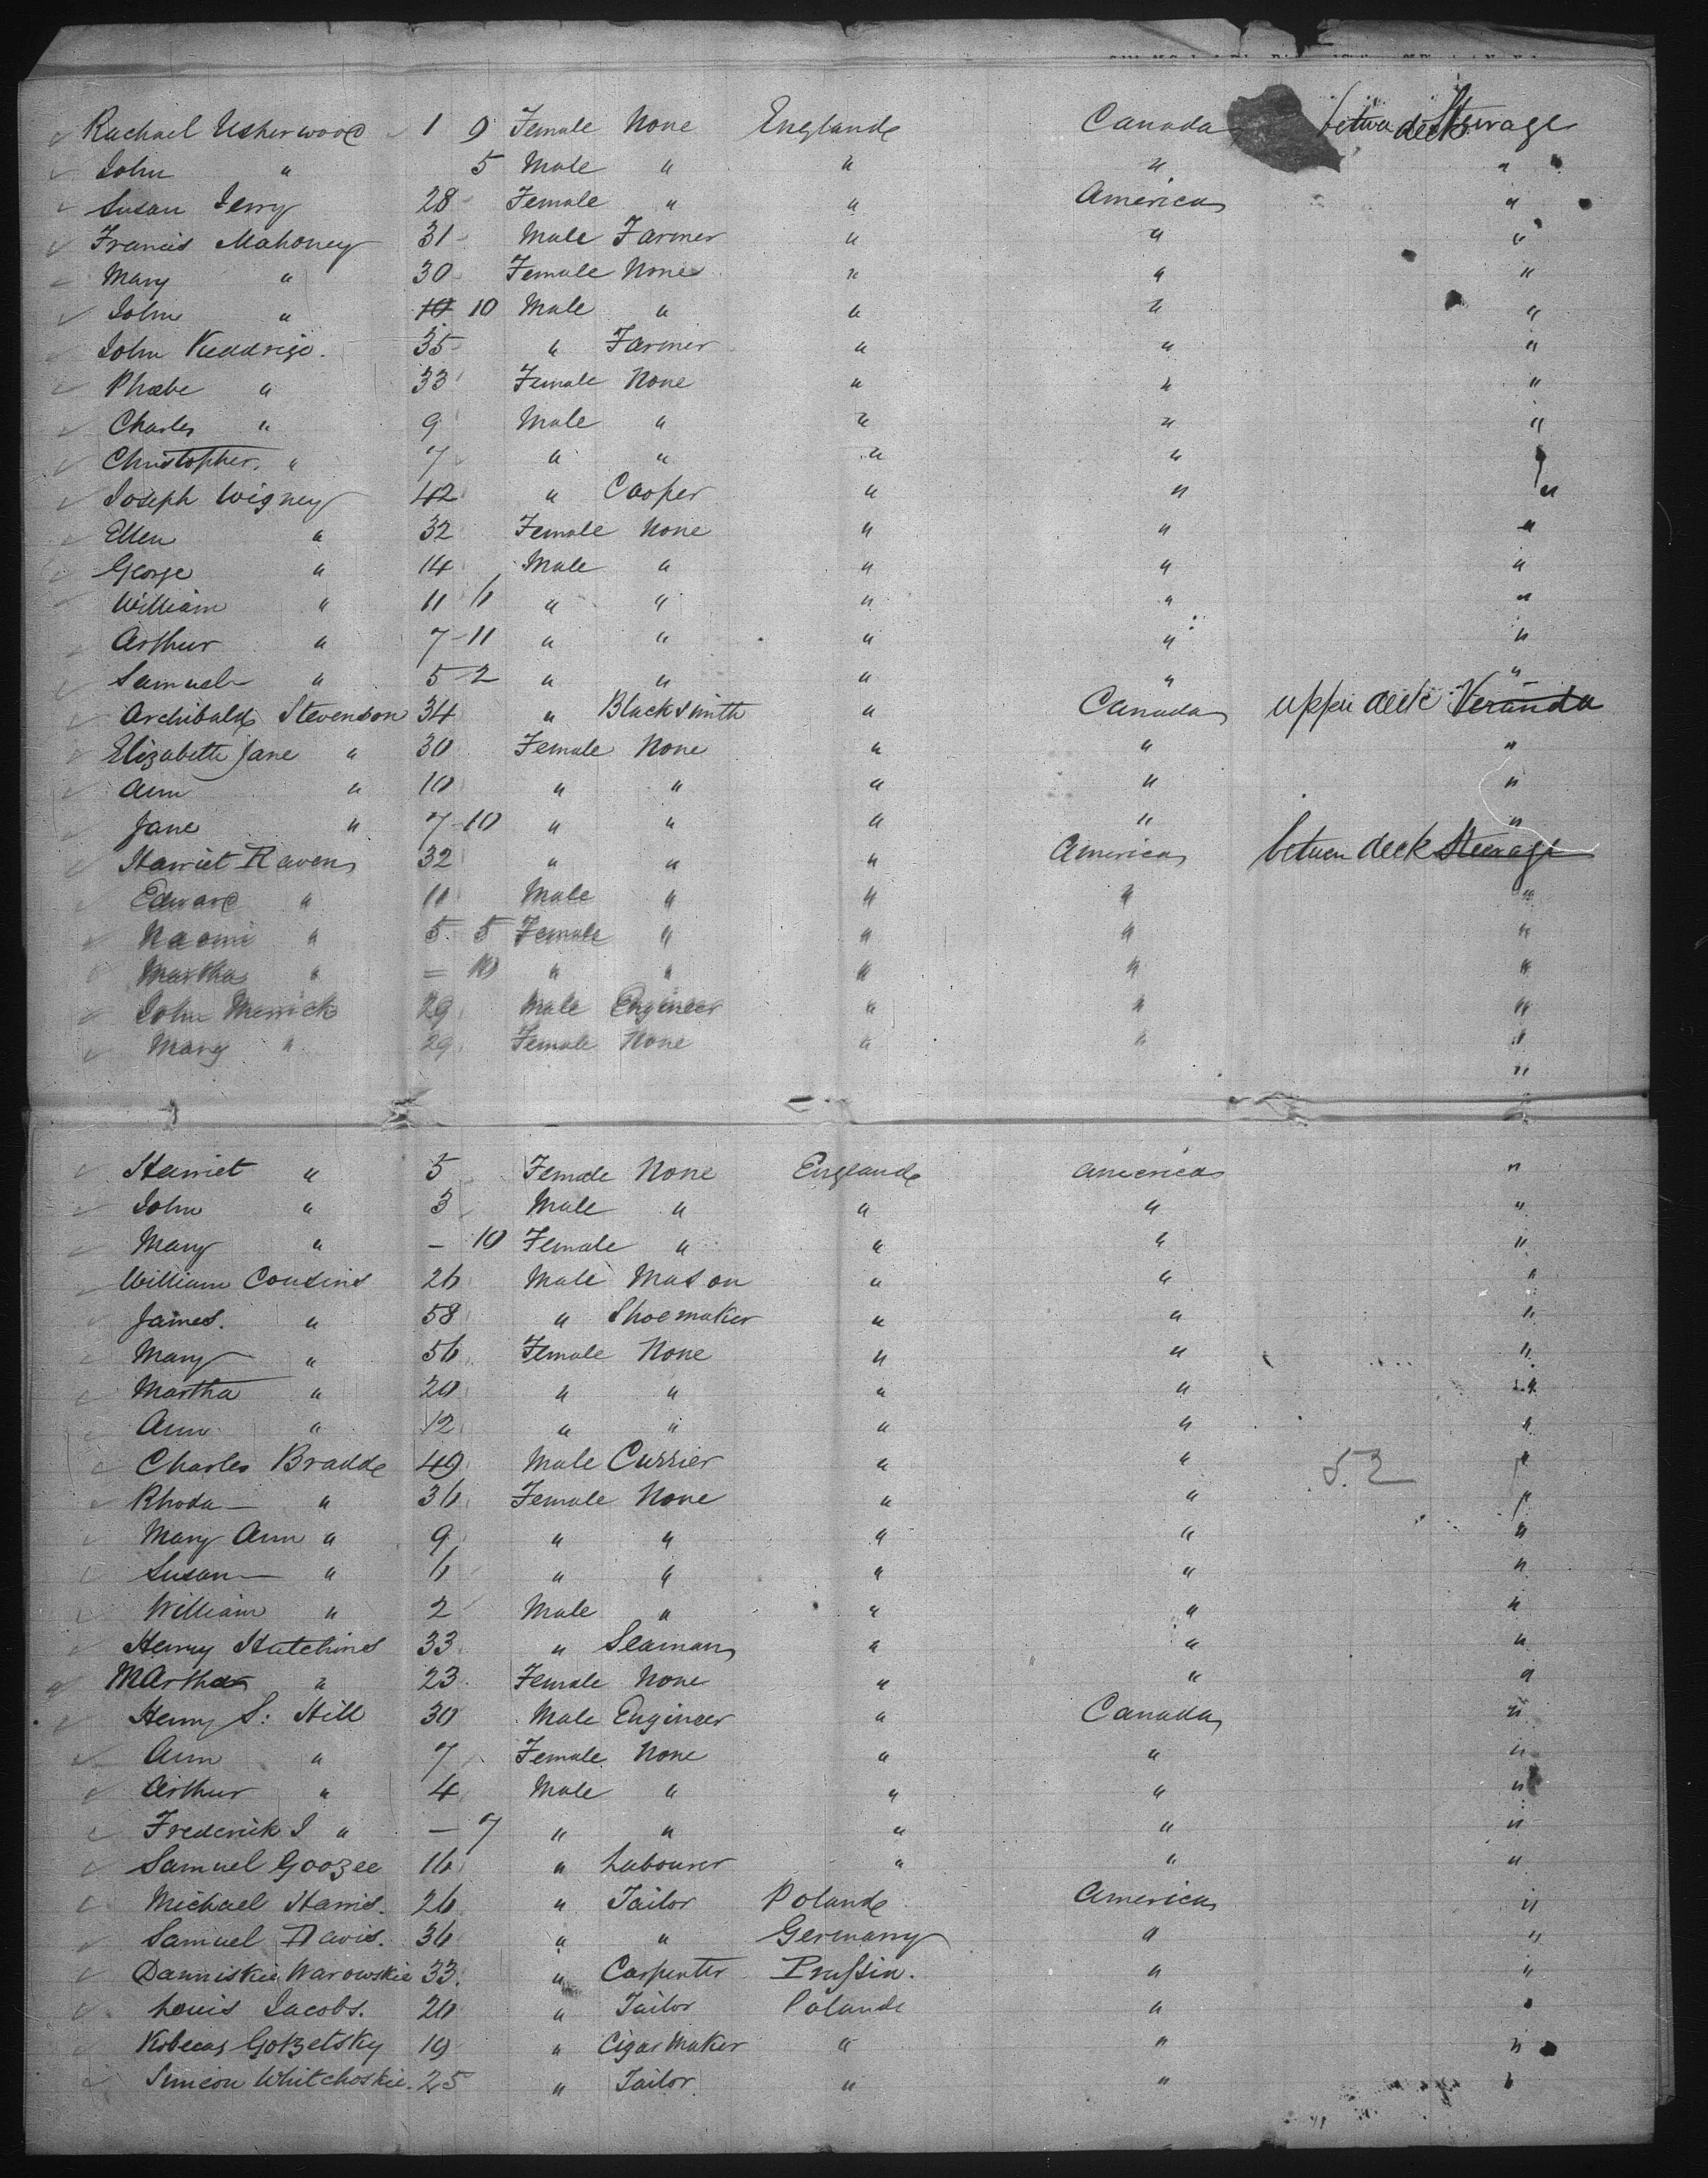 Rachael Usherwood 1 9 Female None England Canada betwn deck Steerage
John " 5 Male " " " " "
Susan Terry 28 Female " " America "
Francis Mahoney 31 Male Farmer " " "
Mary " 30 Female None " " "
John " 10 10 Male " " " "
John 35 " Farmer " " "
Phœbe " 33 Female None " " "
Charles " 9 Male " " " "
Christopher " 7 " " " "
Joseph Wigney 42 " Cooper " " "
Ellen " 32 Female None " " "
George " 14 Male " " " "
William " 11 6 " " " " "
Arthur " 7-11 " " " " "
Samuel " 5-2 " " " " "
Archibald Stevenson 34 " Blacksmith " Canada upper deck Veranda
Elizabeth Jane " 30 Female None " " "
Ann " 10 " " " " "
Jane " 7-10 " " " " "
Harriet Raven 32 " " " America betwen deck Steerage
Edward " 11 Male " " " "
Naomi " 5 5 Female " " " "
Martha " = 10 " " " " "
John Merrick 29 Male Engineer " " "
Mary " 29 Female None " " "
"
Harriet " 5 Female None England America "
John " 3 Male " " " "
Mary " - 10 Female " " " "
William Cousins 26 Male Mason " " "
James. " 58 " Shoemaker " " "
Mary " 56 Female None " " "
Martha " 20 " " " " "
Ann " 12 " " " " "
Charles Bradd 49 Male Currier " " "
52
Rhoda " 36 Female None " " "
Mary Ann " 9 " " " " "
Susan " 6 " " " " "
William " 2 Male " " " "
Henry Hutchins 33 " Seaman " " "
Martha " 23 Female None " " "
Henry S. Hill 30 Male Engineer " Canada "
Ann " 7 Female None " " "
Arthur " 4 Male " " " "
Frederick J " - 7 " " " " "
Samuel Goozee 16 " Labourer " " "
Michael Harris. 26 " Tailor Poland America "
Samuel Davis. 36 " " Germany " "
Danniskie Warowskie 33. " Carpenter Prussia. " "
Louis Jacobs. 20 " Tailor Poland " "
Gotzetsky 19 " Cigar Maker " " "
Simeon Whitchoskie. 25 " Tailor " " "